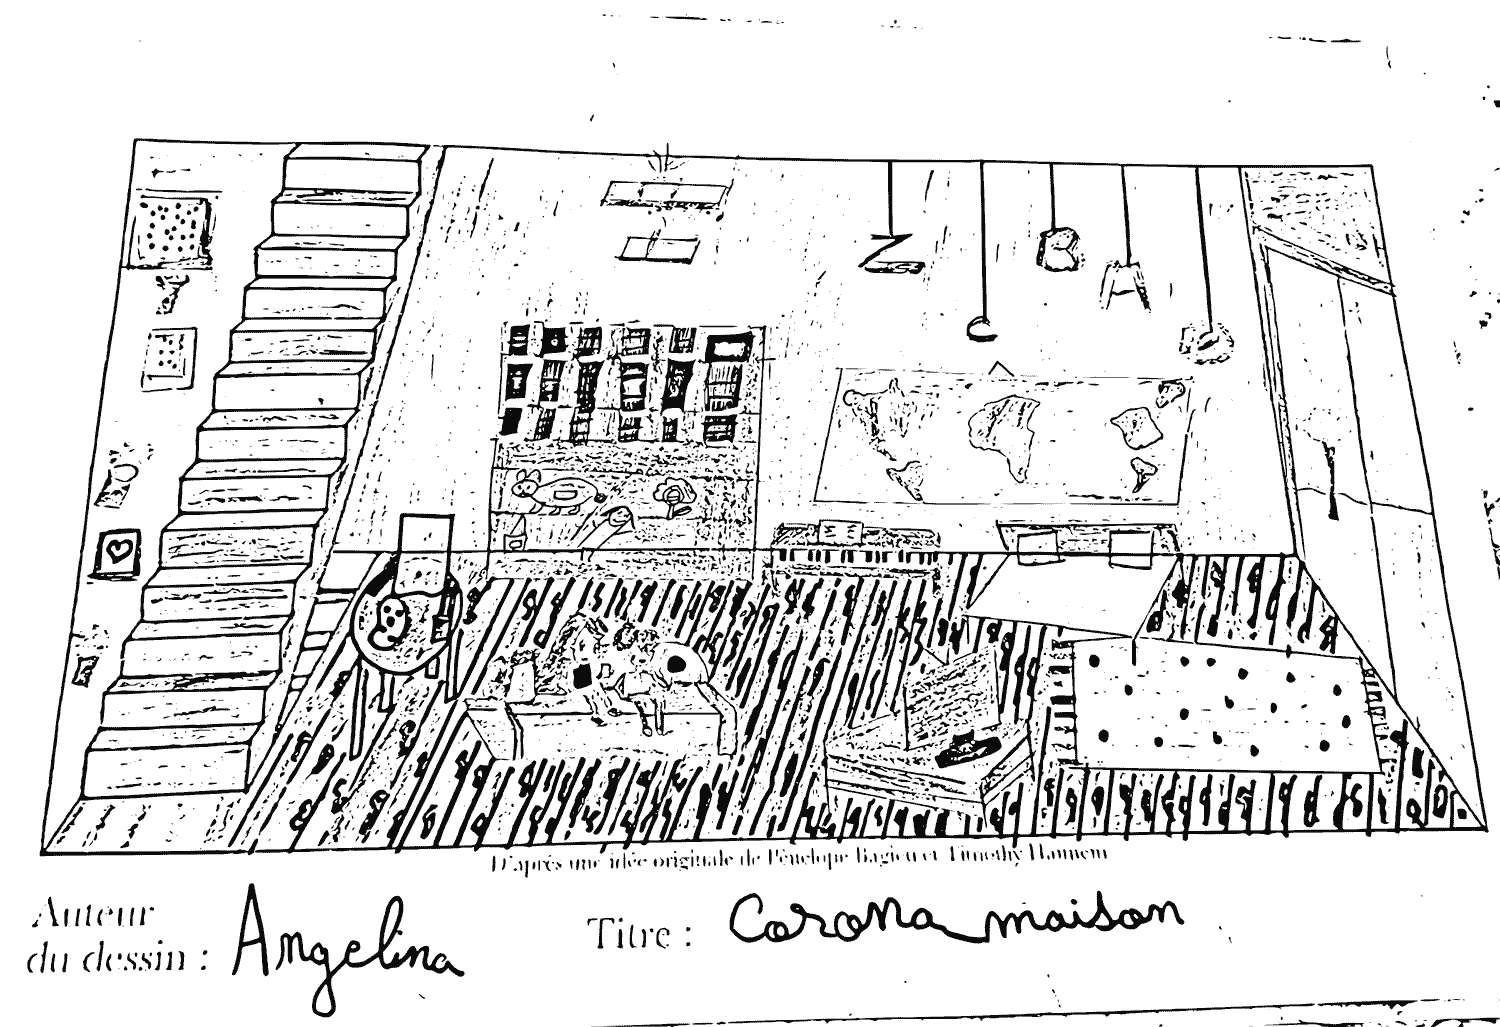 D'après une idée originale de Pénélope Bagieu et Timothy Hannem
Auteur
du dessin : Angelina
Titre : Corona maison